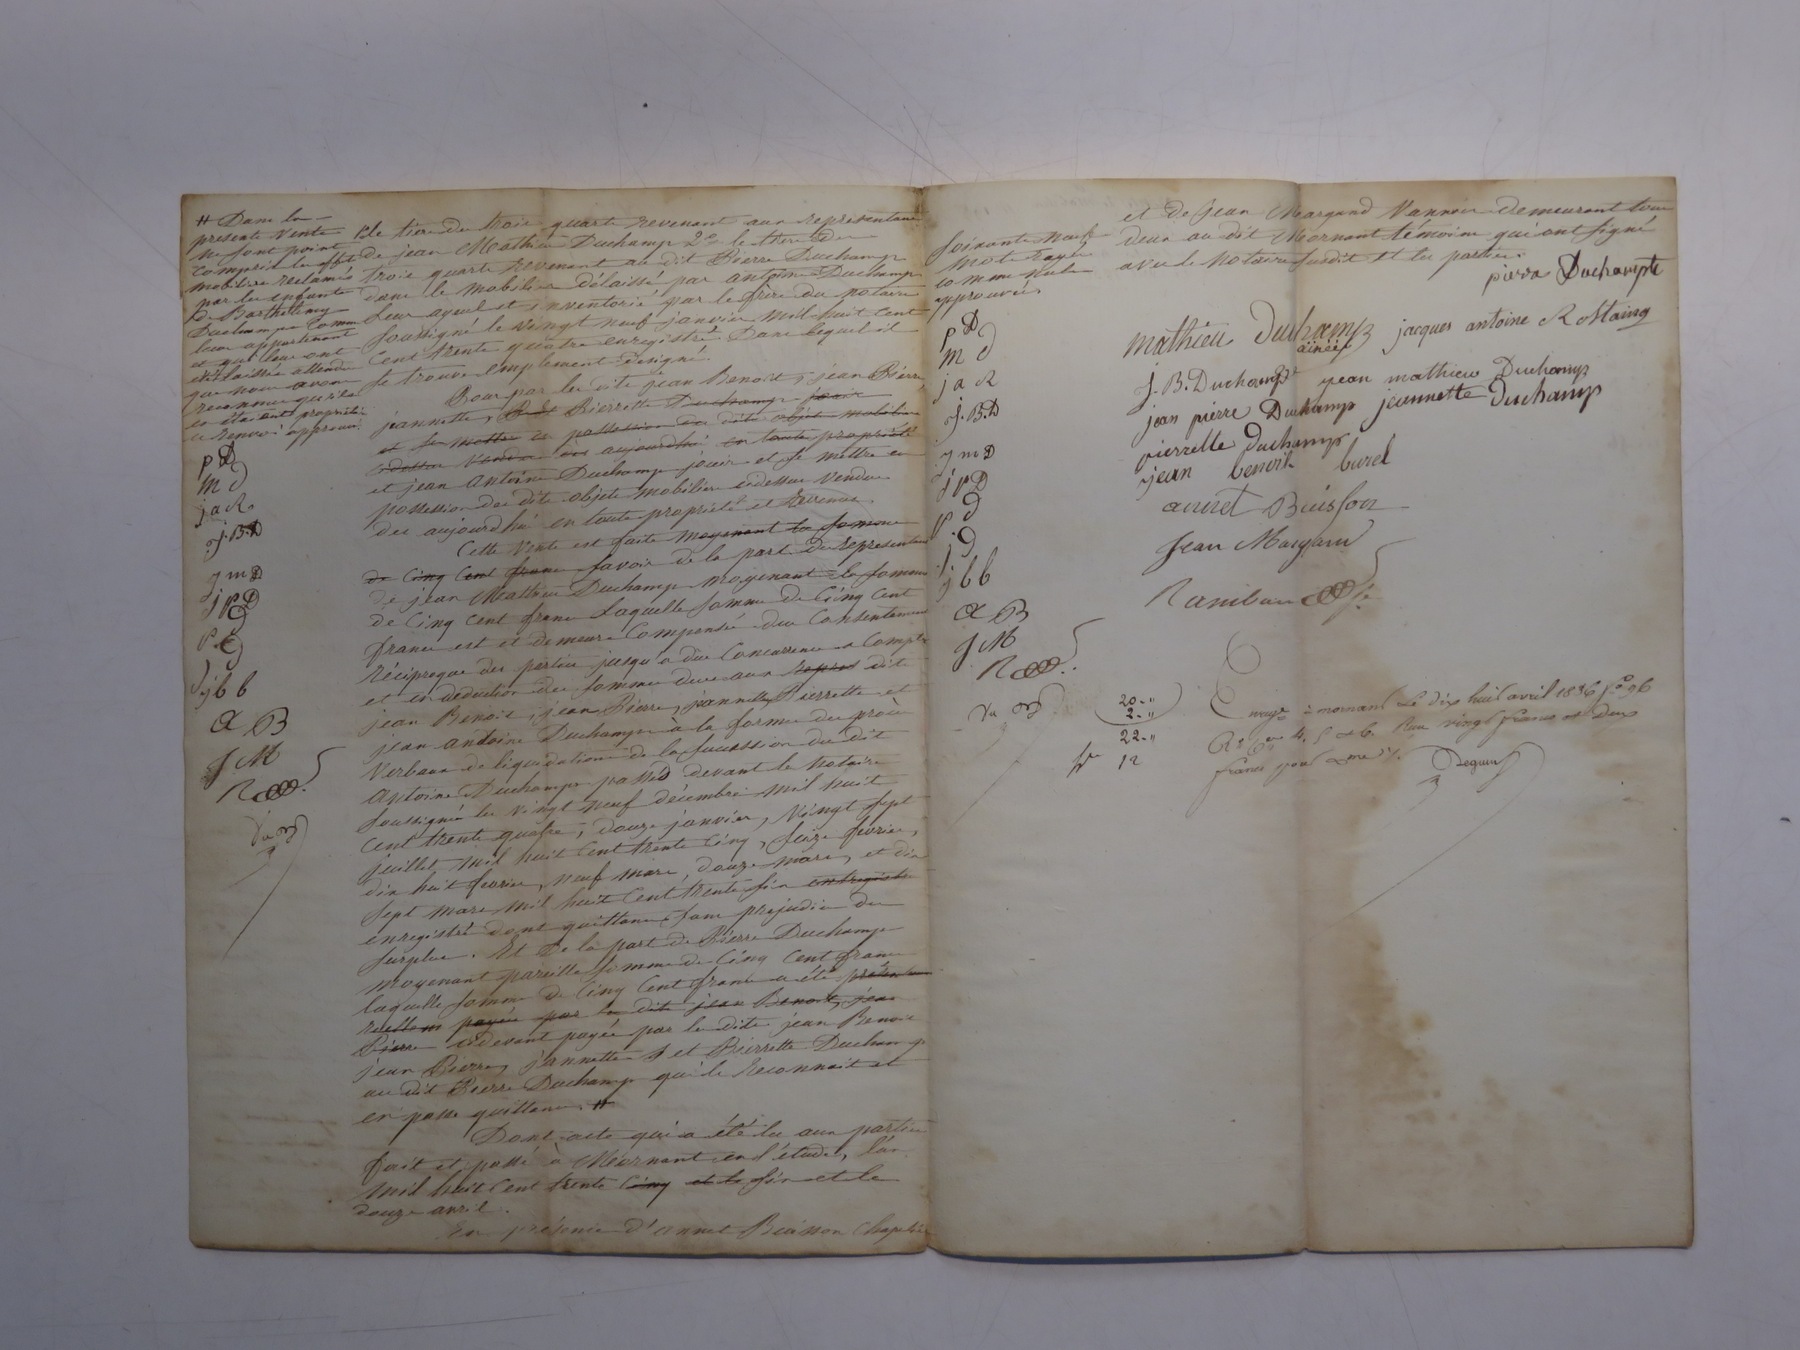 # Dans la
presente Vente
ne sont point
compris les effets
mobiliers reclamés
par les enfants
de Barthélemy
Duchamp comme
leur appartenant
et qui leur ont
été laissés attendu
que nous avons
reconnu qu'ils
en étaient propriétaires
ce renvoi approuvé
p D
m d
j a R.
J. B. D
j m D
j p D
p. d
j. d
j b b
a B
J M
R
1° le tiers des trois quarts revenant aux représentants
de jean Mathieu Duchamp 2° le tiers des
trois quarts revenant au dit Pierre Duchamp
dans le mobilier délaissé par antoine Duchamp
leur ayeul et inventorié par le frère du notaire
soussigné le vingt neuf janvier mil huit cent
cent trente quatre enregistré Dans lequel il
se trouve amplement désigné.
Pour par les dits jean Benoit, jean Pierre,
jeannette, et Pierrette Duchamp jouir
et se mettre en possession des dits objets mobiliers
cidessus Vendus dès aujourdhui en toute propriété
et jean Antoine Duchamp jouir et se mettre en
possession des dits objets mobiliers cidessus Vendus
des aujourdhui en toute propriété et Revenus.
Cette Vente est faite moyenant la somme
de Cinq Cent francs savoir de la part des représentants
de jean Mathieu Duchamp moyenant la somme
de Cinq cent francs Laquelle somme de Cinq Cent
francs est et demeure Compensée du Consentement
réciproque des parties jusqu'a due Concurrence a Compte
et en deduction des sommes dues aux dits
jean Benoit, jean Pierre, jeannette, Pierrette et
jean antoine Duchamp à la forme du procès
Verbaux de liquidation de la succession du dit
Antoine Duchamp passés devant le notaire
soussigné les vingt neuf décembre mil huit
cent trente quatre, douze janvier, Vingt sept
juillet mil huit cent trente cinq, seize fevrier,
dix huit fevrier, neuf mars, douze mars, et dix
sept mars mil huit Cent trente six enregistrés
enregistrés dont quittance sans prejudice du
surplus. Et De la part de Pierre Duchamp
moyenant pareille somme de Cinq Cent francs
laquelle somme de Cinq Cent francs a été présentement
réellement payée par les dits jean Benoit, jean
Pierre cidevant payée par les dits jean Benoit
jean Pierre, jeannette et Pierrette Duchamp
au dit Pierre Duchamp qui le Reconnait et
en passe quittance. #
Dont acte qui a été lu aux parties
fait et passé à Mornant en l'étude, l'an
mil huit Cent trente Cinq et le six et le
douze avril.
En présence d'annet Buisson Chapelier
et de Jean Margand Vannier demeurant tous
deux au dit Mornant témoins qui ont signé
avec le Notaire susdit et les parties.
Soixante neuf
mots rayés
comme nuls
approuvés
p D
m d
j a R
J. B. D
j m D
j p D
p d
j. d
j b b
a B
J M
R
pierre Duchampt
mathieu Duchamp jacques antoine Rostaing
ainée
J. B. Duchamp jean mathieu Duchamp
jean pierre Duchamp jeannette Duchamp
pierrette Duchamp
jean benoit burel
annet Buisson
Jean Margand
20 "
2 "
22 "
12
Enregé à mornant Le dix huit avril 1836 fo 96
Ro Ces 4, 5 et 6. Reçu vingt francs et deux
francs pour